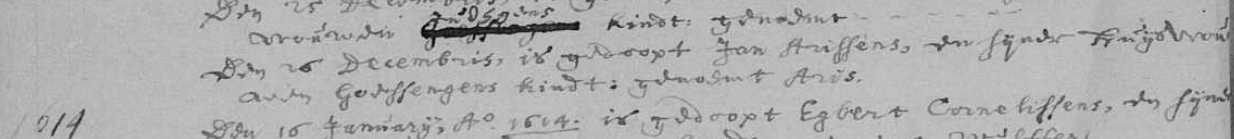 Den 25 Decembris
vrouwen kindt: genoemt
Den 26 Decembris, is gedoopt Jan Arissens, en synde huysvrou
wen Goessengens kindt: genoemt Aris.
1614 Den 16 January, Ao. 1614. is gedoopt Egbert Cornelissens, en synd